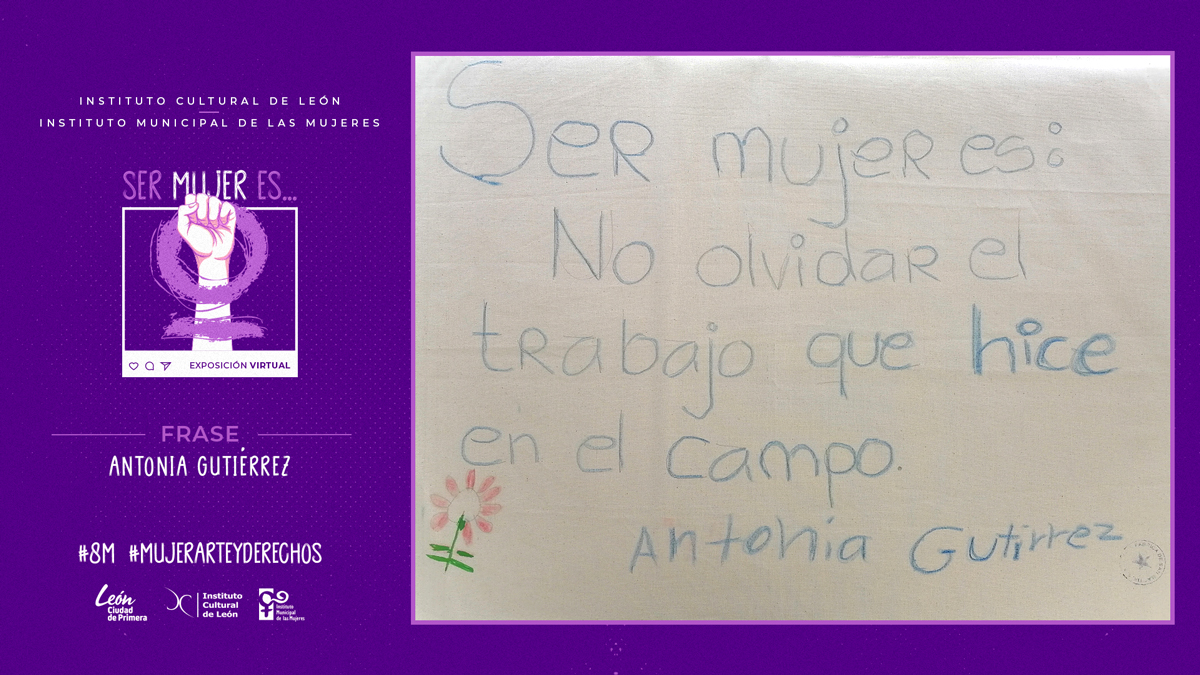 INSTITUTO CULTURAL DE LEÓN
INSTITUTO MUNICIPAL DE LAS MUJERES
SER MUJER ES...
EXPOSICIÓN VIRTUAL
FRASE
ANTONIA GUTIÉRREZ
#8M #MUJERARTEYDERECHOS
León
Ciudad
de Primera
Instituto
Cultural
de León
Instituto
Municipal
de las Mujeres
SER mujER es:
No olvidaR el
tRabajo que hice
en el campo.
Antonia Gutirrez